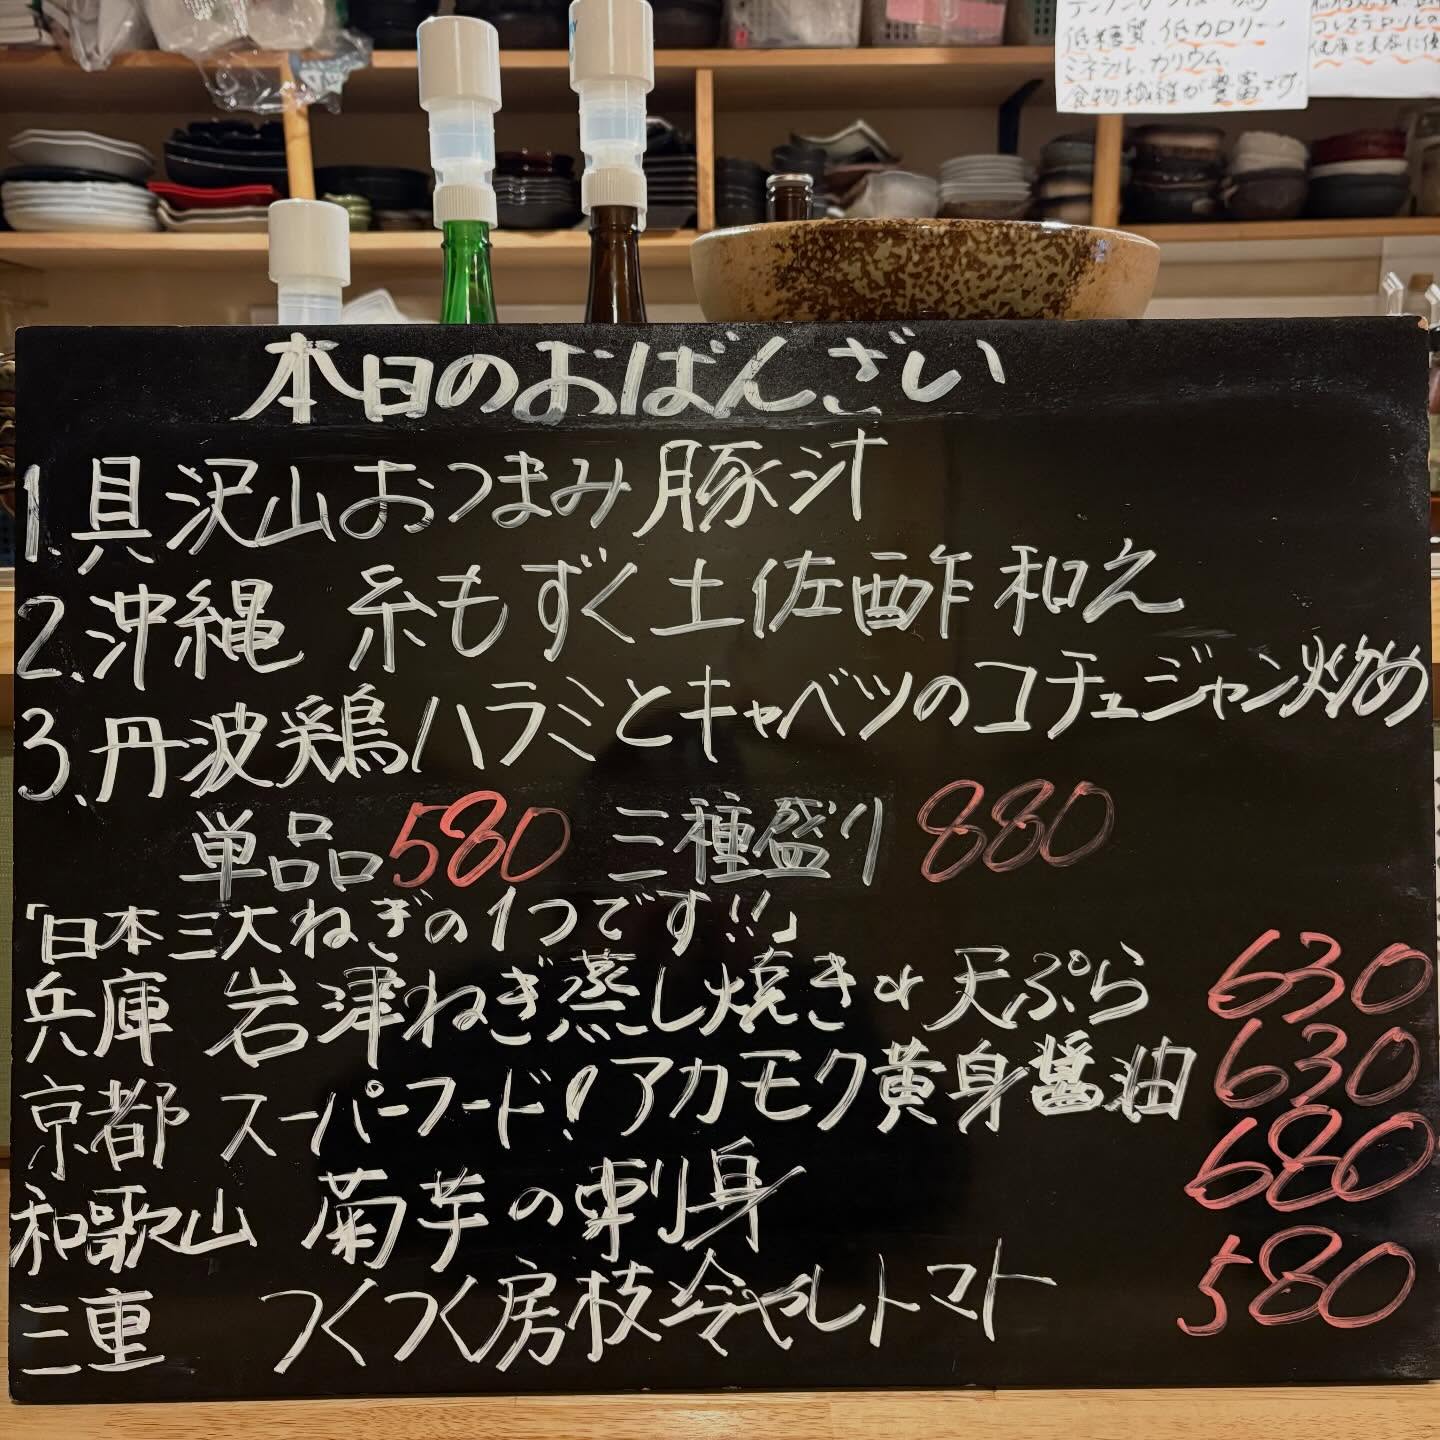 低糖質、低カロリー
ミネラル、カリウム
食物繊維が豊富です
コレステロール
本日のおばんざい
1.具沢山おつまみ豚汁
2.沖縄 糸もずく土佐酢和え
3.丹波鶏ハラミとキャベツのコチュジャン炒め
単品580 三種盛り 880
「日本三大ねぎの1つです!!」
兵庫 岩津ねぎ蒸し焼きor天ぷら 630
京都 スーパーフード!アカモク黄身醤油 630
和歌山 菊芋の刺身 680
三重 つくつく房枝冷やしトマト 580